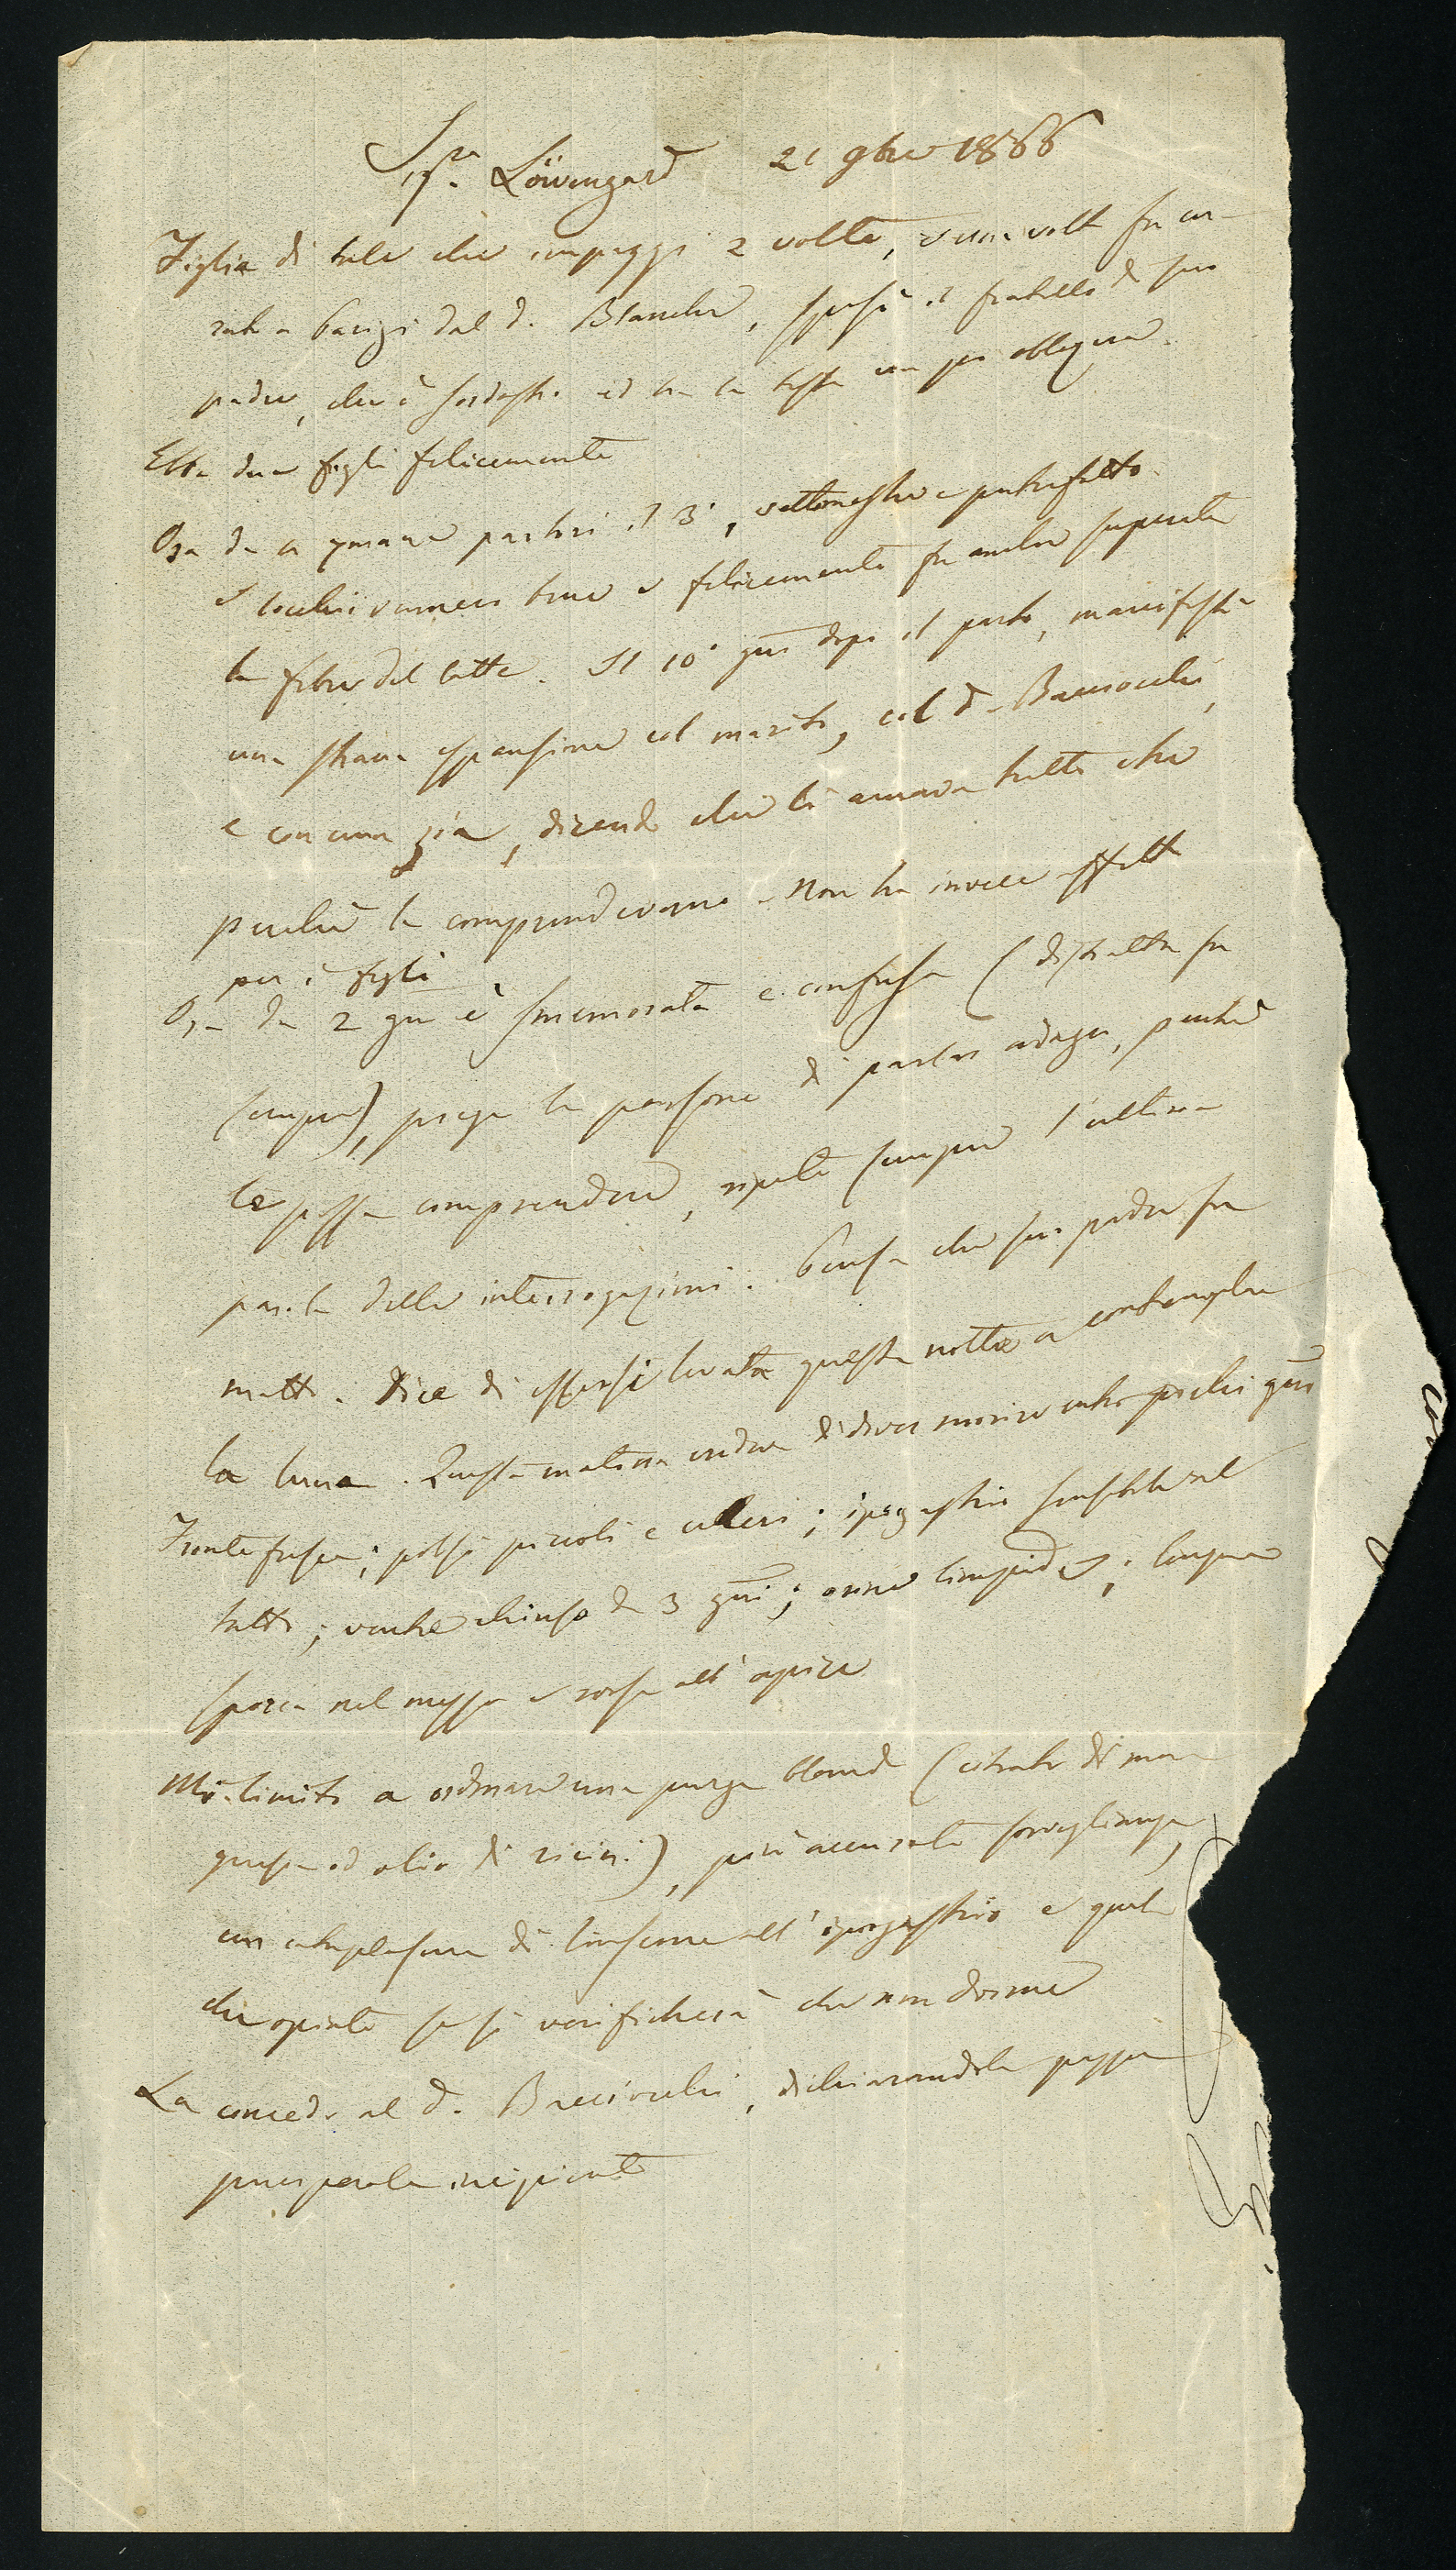 Sigra. Löwengard 21 9bre 1866
Figlia di tale che impazzì 2 volte, e una volta fu cu-
rato a Parigi dal d. Blanche, sposò il fratello di suo
padre, che è sordastro ed ha la testa un po obliqua.
Ebbe due figli felicemente
Ora da partorì il 3°, settimestre e putrefatto.
I lochi vennero bene e felicemente fu anche superata
la febbre del latte. Il 10° gno dopo il parto, manifestò
una strana espansione col marito, col d. Bacciocchi,
e con una zia, dicendo che li amava tutti
perchè la comprendevano. Non ha invece affetto
per i figli
Ora da 2 gni è smemorata e confusa (distratta fu
sempre), prega le persone di parlar adagio, perchè
le possa comprendere, ripete sempre l'ultima
parola delle interrogazioni. Pensa che suo padre fu
matto. Dice di essersi levata questa notte a contemplare
la luna. Questa mattina credeva di dover morire entro pochi gni
Fronte fresca; polsi piccoli e celeri; ipogastrio sensibile al
tatto; ventre chiuso da 3 gni; orine limpide; lingua
sporca nel mezzo e rossa all'apice
Mi limito a ordinare una purga blanda (citrato di ma-
gnesia od olio di ricini), più accurata sorveglianza,
un cataplasma di linseme all'ipogastrio e qual
che opiato se si verificherà che non dorme
La concedo al d. Bacciocchi, dichiarandola pazza
puerperale incipiente